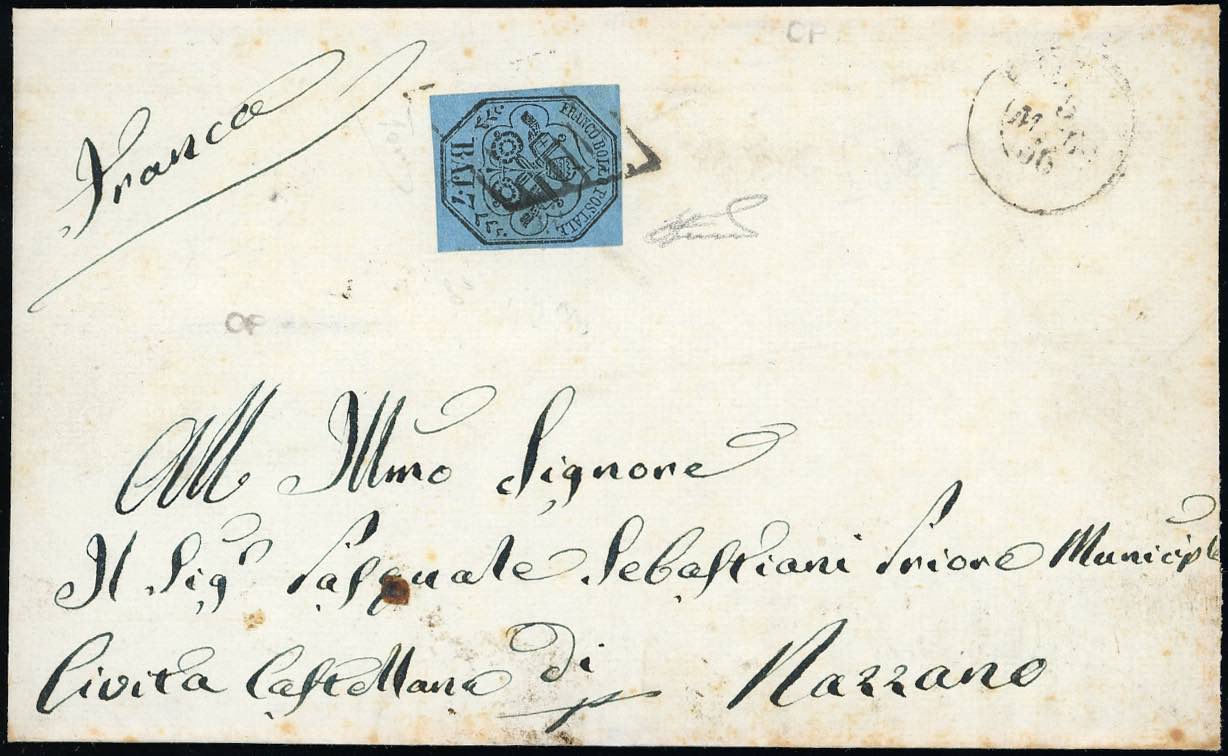 Franca
FRANCO BOLLO POSTALE
BAJ. 7
OP
OP
56
All Illmo Signore
Il Sigr Pasquale Sebastiani Priore Municiple
Civita Castellana di Nazzano